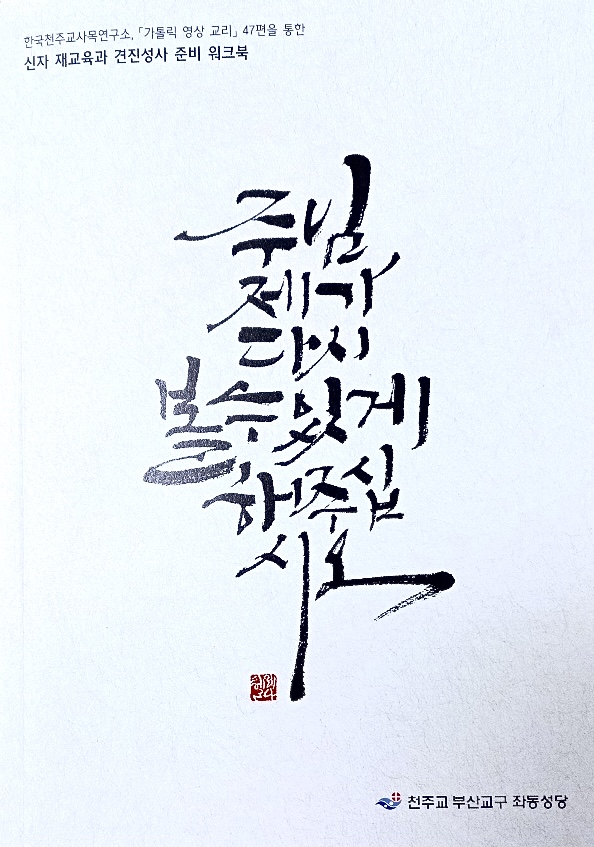 한국천주교사목연구소, 「가톨릭 영상 교리」 47편을 통한
신자 재교육과 견진성사 준비 워크북
주님
제가
다시
볼수있게
해주십
시오
천주교 부산교구 좌동성당